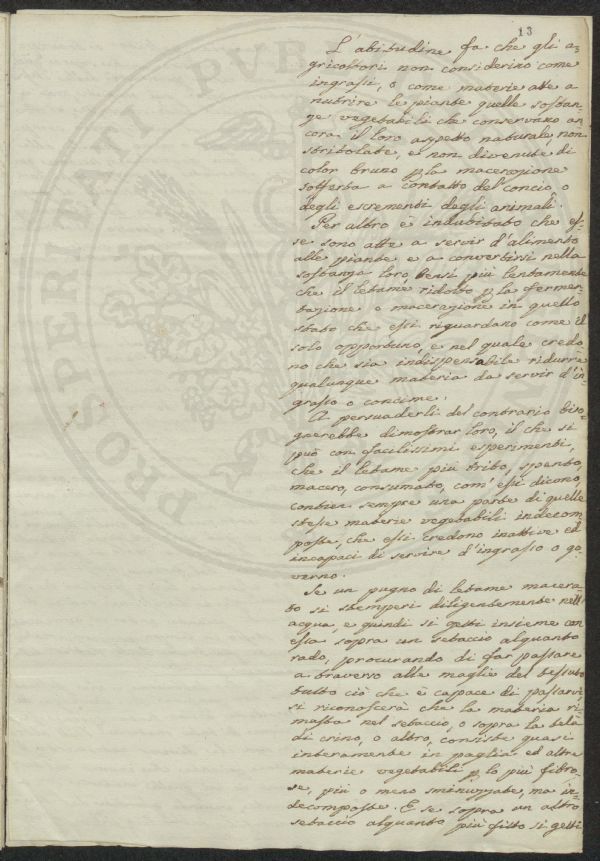 13
L'abitudine fa che gli a-
gricoltori non considerino come
ingrassi, o come materie atte a
nutrire le piante quelle sostan-
ze vegetabili che conservano an-
cora il loro aspetto naturale, non
stritolate, e non divenute di
color bruno p la macerazione
sofferta a contatto del concio, o
degli escrementi degli animali.
Per altro è indubitato che es-
se sono atte a servir d'alimento
alle piante e a convertirsi nella
sostanza loro, bensì più lentamente
che il letame ridotto p la fermen-
tazione o macerazione in quello
stato che essi riguardano come il
solo opportuno, e nel quale credo-
no che sia indispensabile ridurre
qualunque materia da servir d'in-
grasso o concime.
A persuaderli del contrario biso-
gnerebbe dimostrar loro, il che si
può con facilissimi esperimenti,
che il letame più trito, spento,
macero, consumato, com'essi dicono,
contien sempre una parte di quelle
stesse materie vegetabili indecom-
poste, che essi credono inattive ed
incapaci di servire d'ingrasso o go-
verno.
Se un pugno di letame macera-
to si stemperi diligentemente nell'
acqua, e quindi si getti insieme con
essa sopra un setaccio alquanto
rado, procurando di far passare
a traverso alle maglie del tessuto
tutto ciò che è capace di passarvi,
si riconoscerà che la materia ri-
masta nel setaccio, o sopra la tela
di crino, o altro, consiste quasi
interamente in paglia ed altre
materie vegetabili p lo più fibro-
se, più o meno sminuzzate, ma in-
decomposte. E se sopra un altro
setaccio alquanto più fitto si getti
PROSPERITATI PVBL